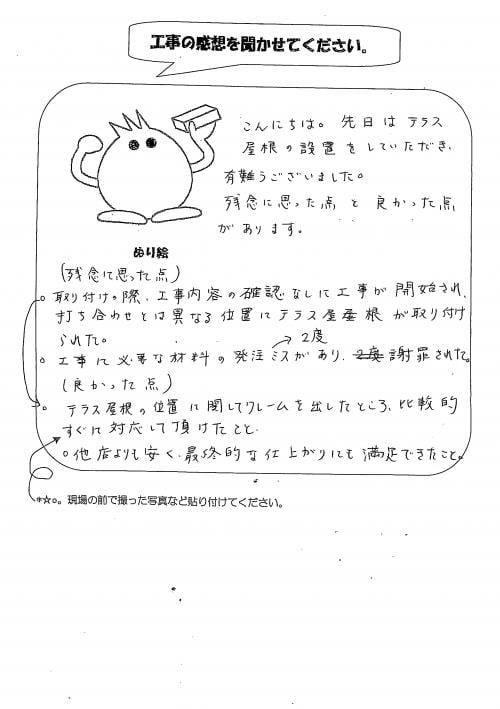 工事の感想を聞かせてください。
こんにちは。先日はテラス
屋根の設置をしていただき、
有難うございました。
残念に思った点と良かった点
があります。
ぬり絵
(残念に思った点)
○取り付けの際、工事内容の確認なしに工事が開始され、
打ち合わせとは異なる位置にテラス屋屋根が取り付け
られた。
→2度
○工事に必要な材料の発注ミスがあり、2度謝罪された。
(良かった点)
○テラス屋根の位置に関してクレームを出したところ、比較的
すぐに対応して頂けたこと
○他店よりも安く、最終的な仕上がりにも満足できたこと。
*☆○。現場の前で撮った写真など貼り付けてください。